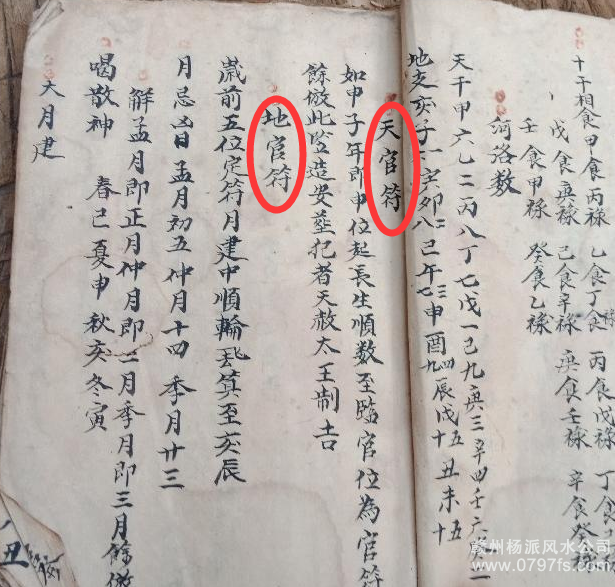 十干相食甲食丙禄 乙食丁食 丙食戊禄
戊食庚禄 己食辛禄 庚食壬禄 辛食癸禄
壬食甲禄 癸食乙禄
河洛数
天干甲六乙二丙八丁七戊一己九庚三辛四壬六
地支亥子一寅卯三八巳午二七申酉四九辰戌五十丑未十五
天官符
如甲子年即申位起長生順数至臨官位為官符
餘倣此竪造安葬犯者天赦太王制吉
地官符
歲前五位定符月建中順輪我算至亥辰
月忌凶日孟月初五仲月十四季月廿三
解孟月即正月仲月即二月季月即三月餘倣
喝散神 春巳夏申秋亥冬寅
大月建
丑
赣州杨派风水公司
www.0797fs.com